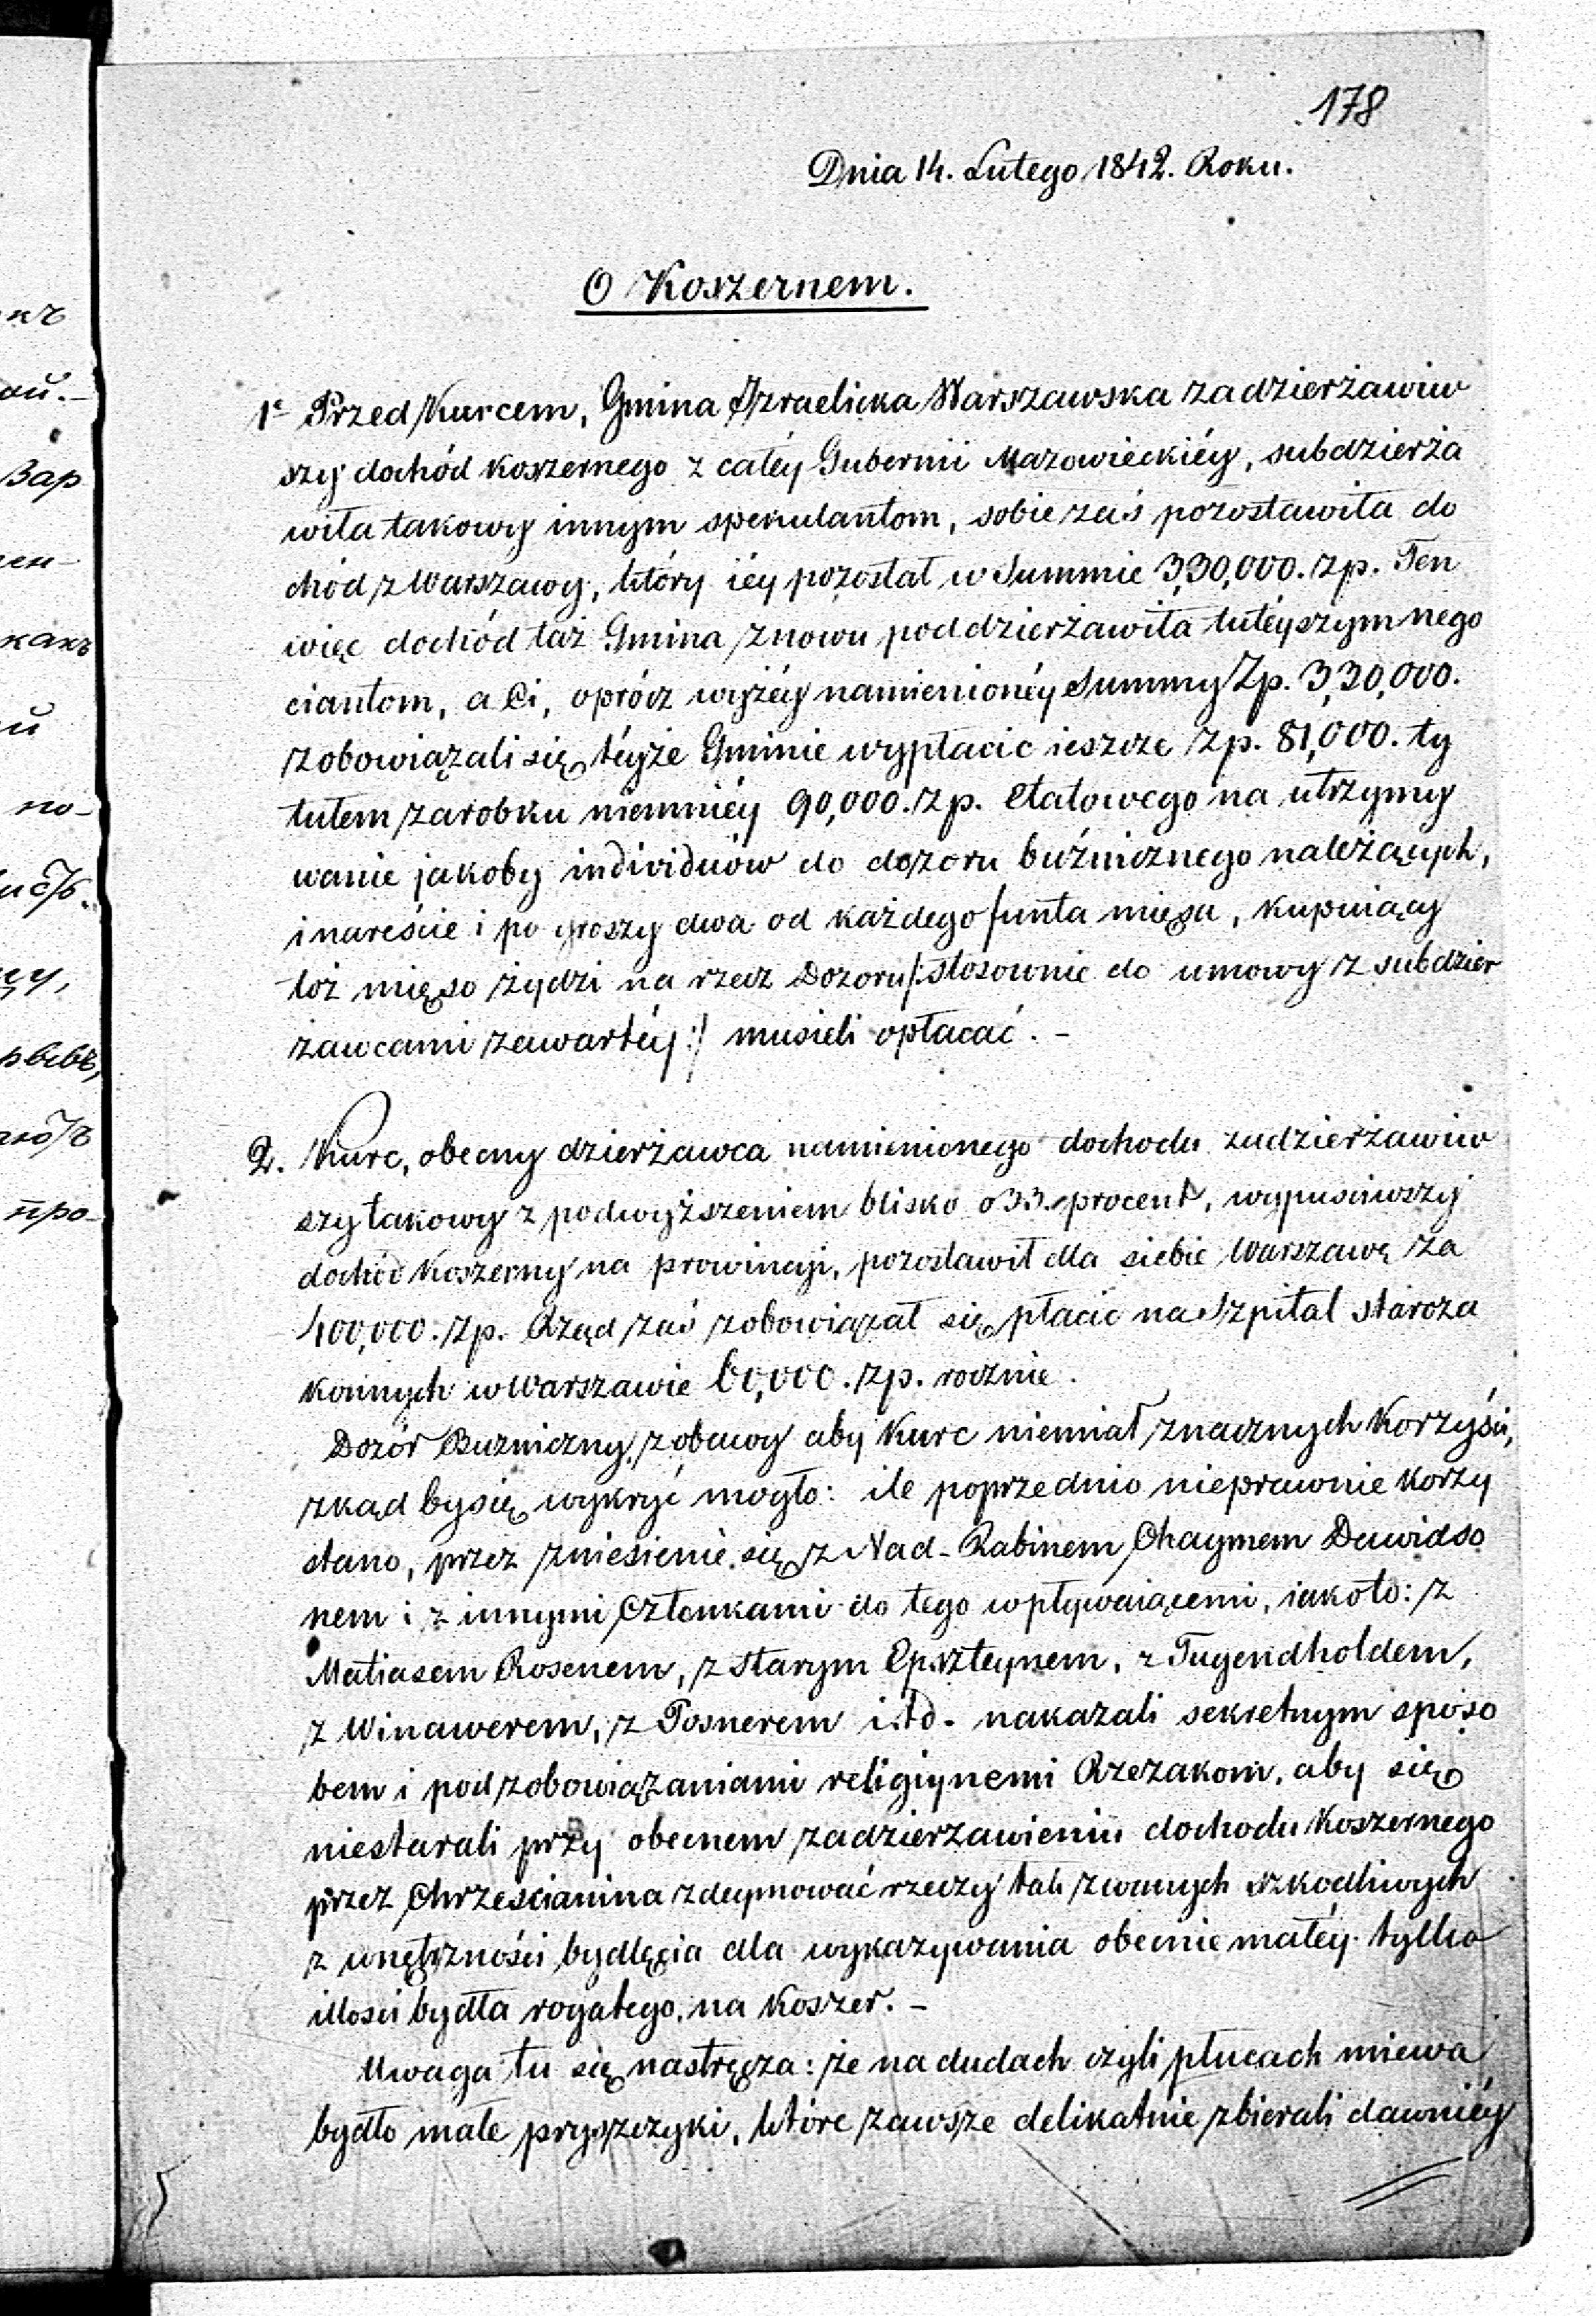 178
Dnia 14. Lutego 1842. Roku.
O Koszernem.
1e Przed Kurcem, Gmina Izraelicka Warszawska zadzierżawiw
szy dochód koszernego z całéy Gubernii Mazowieckiéy, subdzierża
wiła takowy innym spekulantom, sobie zaś pozostawiła do
chód z Warszawy, który iéy pozostał w Summie 330,000. zp. Ten
więc dochód taż Gmina znowu poddzierżawiła tutéyszym nego
ciantom, a Ci, oprócz wyżéy namienionéy Summy Zp. 330,000.
zobowiązali się téyże Gminie wypłacić ieszcze zp. 81,000. ty
tułem zarobku niemniéy 90,000. zp. etatowego na utrzymy
wanie jakoby individuów do dozoru buźnicznego należących,
i nareście i po groszy dwa od każdego funta mięsa, kupuiący
toż mięso żydzi na rzecz Dozoru /: stosownie do umowy z subdzier
żawcami zawartéy :/ musieli opłacać. -
2. Kurc, obecny dzierżawca namienionego dochodu zadzierżawiw
szy takowy z podwyższeniem blisko o 33. procent, wypuściwszy
dochód Koszerny na prowincyi, pozostawił dla siebie Warszawę za
400,000. zp. Rząd zaś zobowiązał się płacić na Szpital staroza
konnych w Warszawie 60,000. zp. rocznie.
Dozór Buzniczny z obawy aby Kurc niemiał znacznych Korzyści,
zkąd by się wykryć mogło: ile poprzednio nieprawnie korzy
stano, przez zniesienie się z Nad-Rabinem Chaymem Dawidso
nem i z innymi Członkami do tego wpływaiącemi, iakoto: z
Matiasem Rosenem, z starym Epszteynem, z Tugendholdem,
z Winawerem, z Posnerem i.t.d. nakazali sekretnym sposo
bem i pod zobowiązaniami religiynemi Rzezakom, aby się
niestarali przy obecnem zadzierzawieniu dochodu Koszernego
przez Chrześcianina zdeymować rzeczy tak zwanych szkodliwych
z wnętrzności bydlęcia dla wykazywania obecnie małéy tylko
illości bydła rogatego, na Koszer. -
Uwaga tu się nastręcza: że na dudach czyli płucach miewa
bydło małe pryszczyki, które zawsze delikatnie zbierali dawniéy